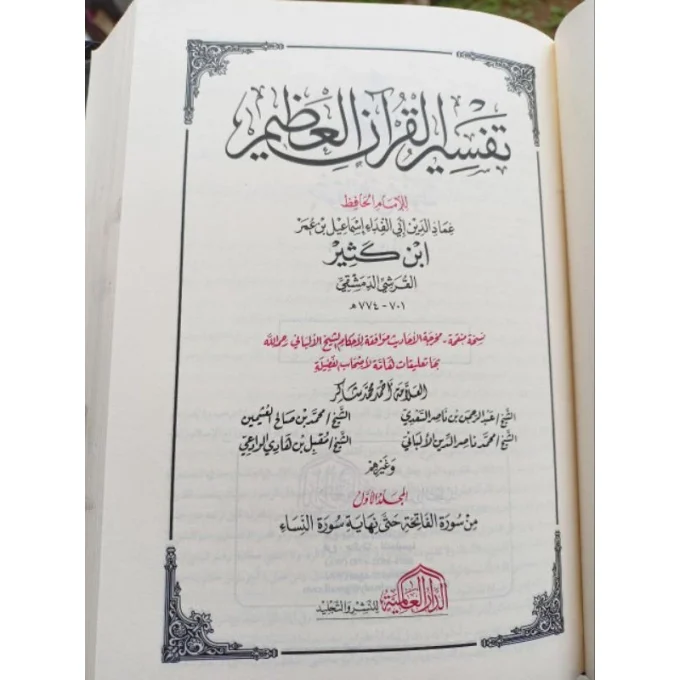 تفسير القرآن العظيم
للإمام الحافظ
عماد الدين أبي الفداء إسماعيل بن عمر
ابن كثير
القرشي الدمشقي
٧٠١ - ٧٧٤ هـ
نسخة منقحة - مخرجة الأحاديث موافقة لأحكام الشيخ الألباني رحمه الله
بها تعليقات هامة لأصحاب الفضيلة
العلامة أحمد محمد شاكر
الشيخ/ عبد الرحمن بن ناصر السعدي الشيخ/ محمد بن صالح العثيمين
الشيخ/ محمد ناصر الدين الألباني الشيخ/ مقبل بن هادي الوادعي
وغيرهم
المجلد الأول
من سورة الفاتحة حتى نهاية سورة النساء
الدار العالمية للنشر والتجليد